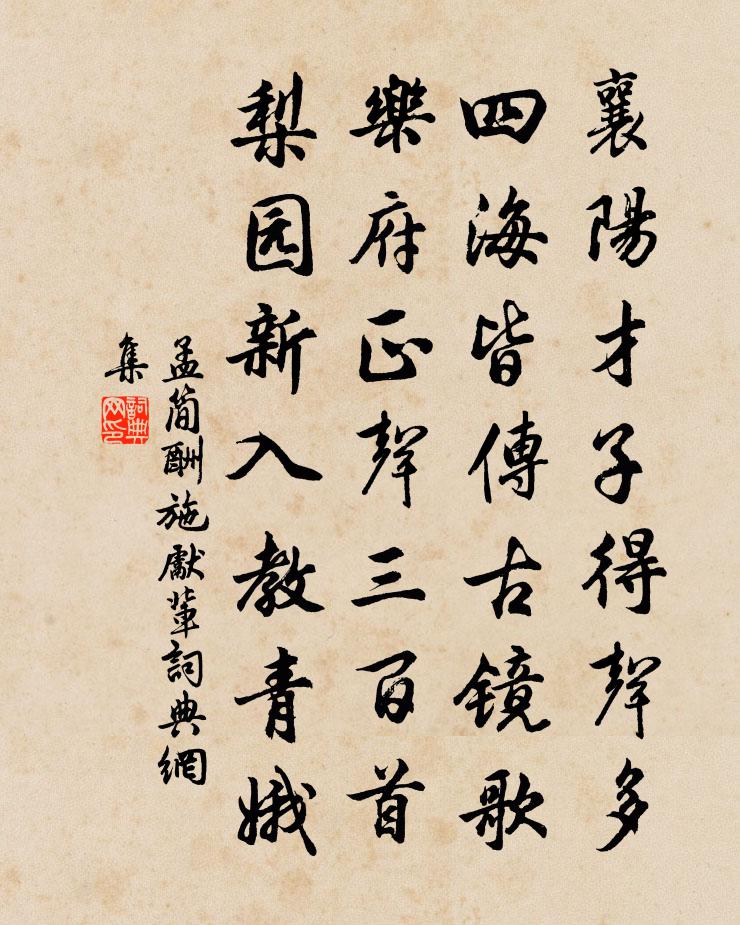 襄陽才子得聲多
四海皆傳古镜歌
樂府正聲三百首
梨园新入教青娥
孟简酬施獻輩詞典網
集
詞典
网印